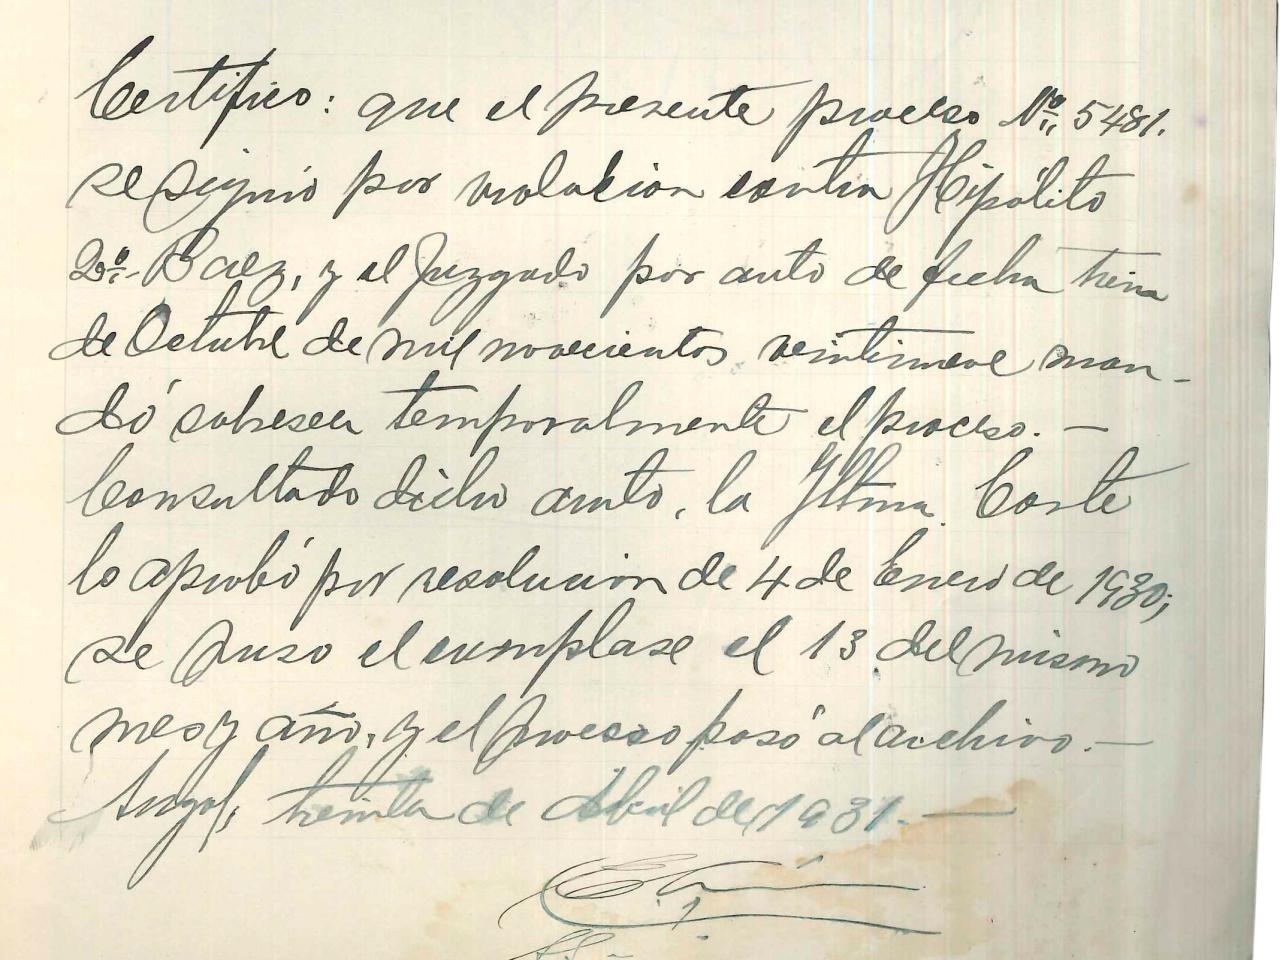 Certifico: que el presente proceso No. 5481.
se siguió por violacion contra Hipólito
2do.- Baez, y el Juzgado por auto de fecha
de Octubre de mil novecientos veintinueve man-
dó sobreseer temporalmente el proceso. —
Consultado dicho auto, la Iltma. Corte
lo aprobó por resolucion de 4 de Enero de 1930;
se puso el cumplase el 13 del mismo
mes y año, y el proceso pasó al archivo. —
Angol, treinta de Abril de 1931. —